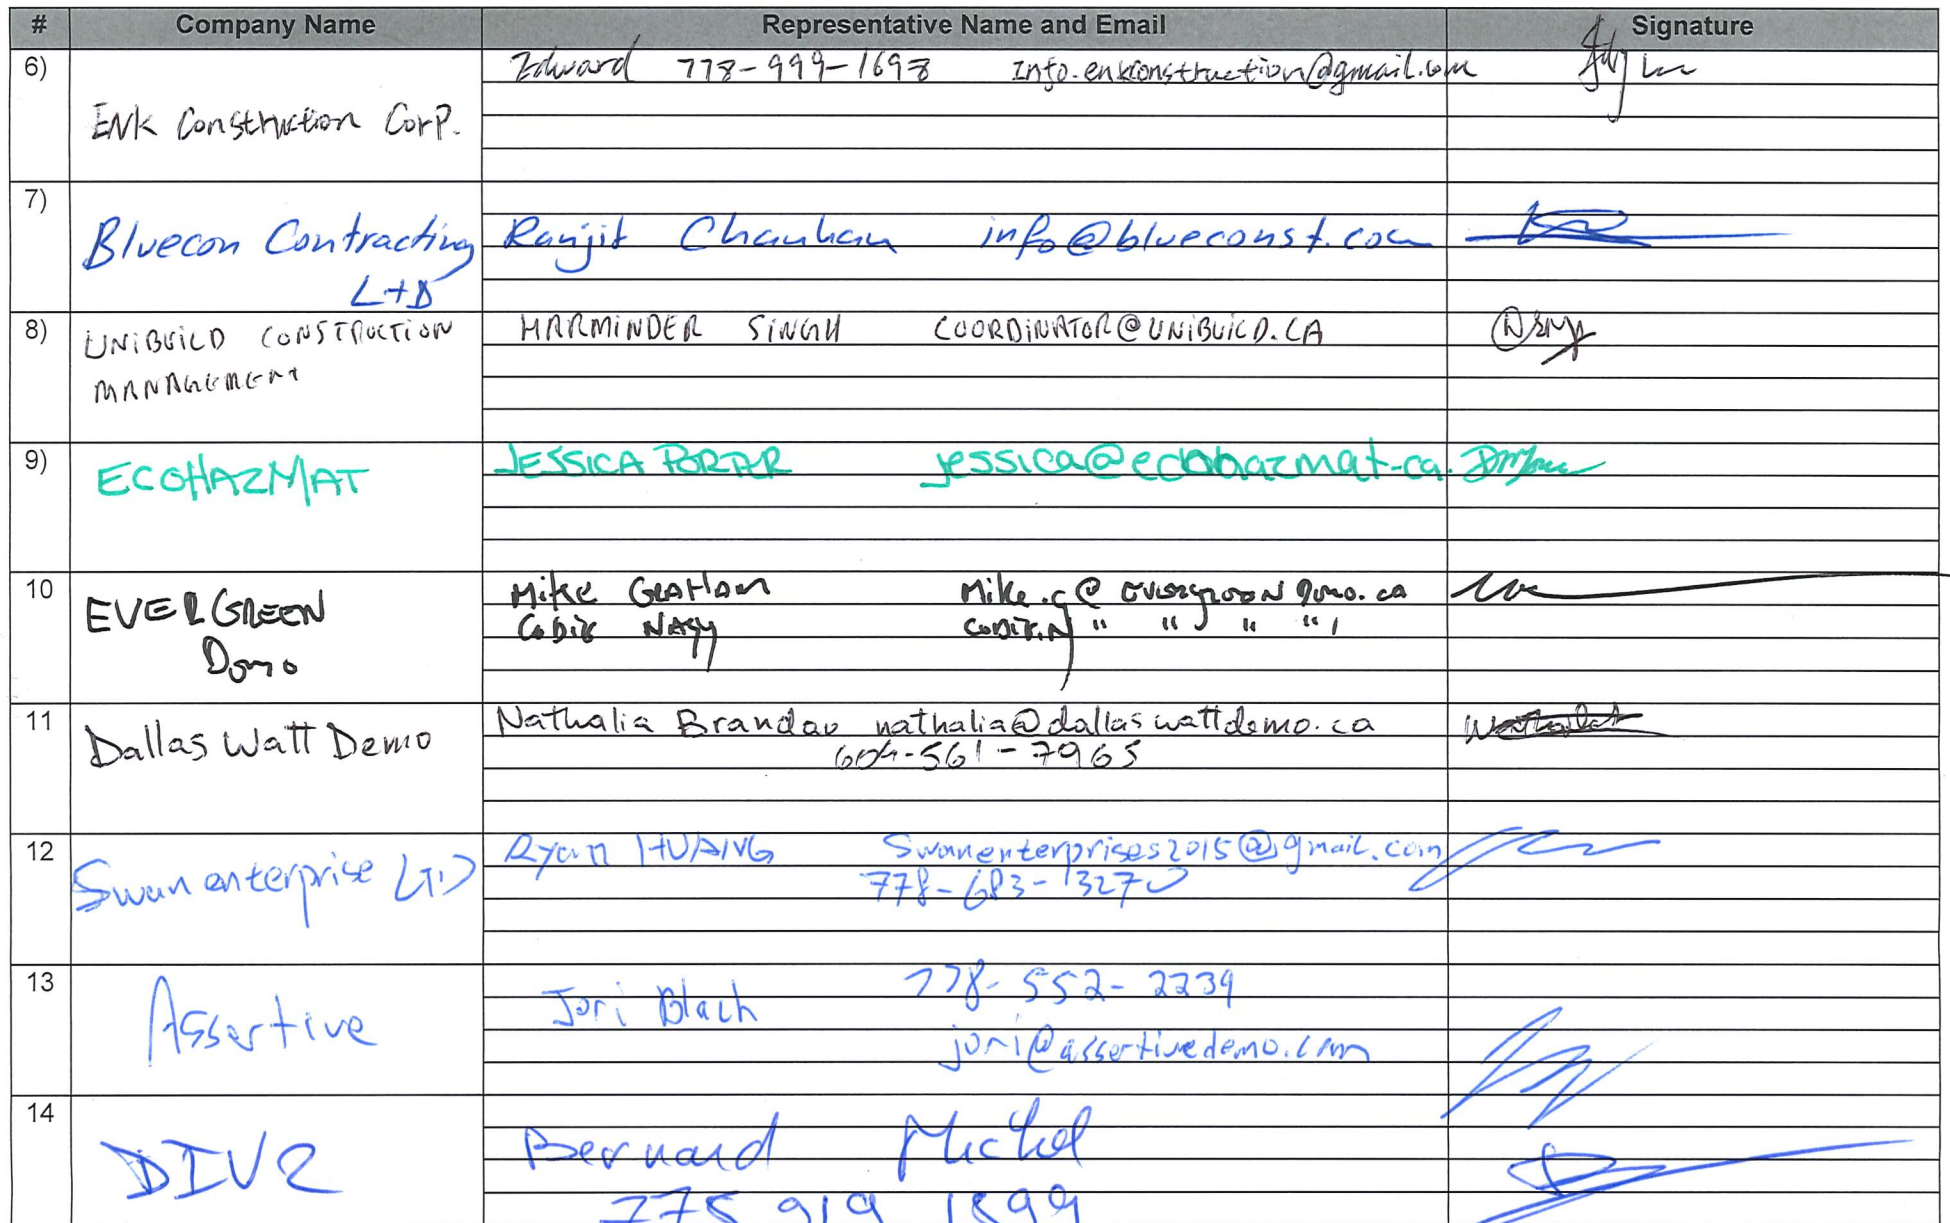 # Company Name Representative Name and Email Signature
6) Edward 778-999-1698 Info.enkconstruction@gmail.com
ENK Construction Corp.
7)
Bluecon Contracting Ranjit Chauhan info@blueconst.com
LTD
8) UNIBUILD CONSTRUCTION HARMINDER SINGH COORDINATOR@UNIBUILD.CA
MANAGEMENT
9) ECOHAZMAT JESSICA PORTER jessica@ecohazmat.ca
10 EVERGREEN Mike GRAHAM Mike.g@EVERGREENDEMO.ca
CODIE NAGY CODIE.N " " " "
Demo
11 Dallas Watt Demo Nathalia Brandao nathalia@dallaswattdemo.ca
604-561-7965
12 Swan enterprise LTD Ryan HUANG Swanenterprises2015@gmail.com
778-683-3270
13 778-552-2239
Assertive Jori Blach
jori@assertivedemo.com
14
DIV2 Bernard Michel
778 919 1899